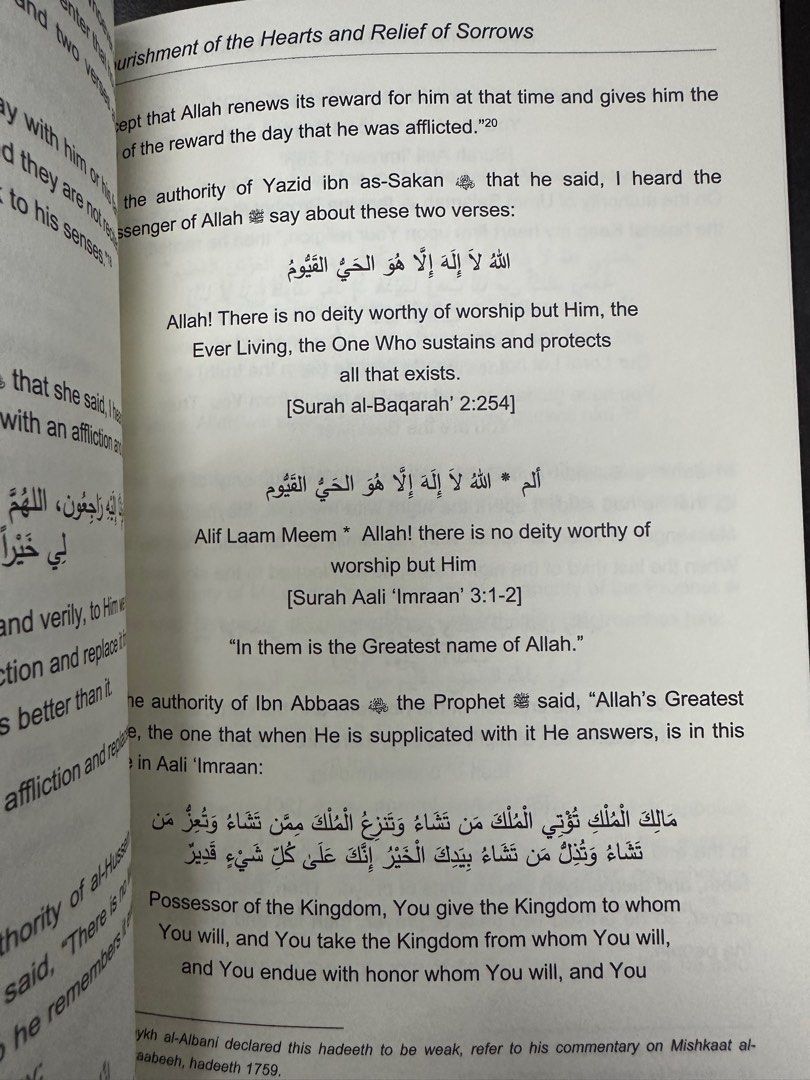 enter that
and two verses
with him or his
they are not
to his senses."
that she said, I
with an affliction
إِلَيْهِ رَاجِعُون، اللهُمَّ
لِي خَيْراً
and verily, to Him we
and replace it
better than it.
affliction and
of
said, "There is no
he remembers it
urishment of the Hearts and Relief of Sorrows
cept that Allah renews its reward for him at that time and gives him the
of the reward the day that he was afflicted."20
the authority of Yazid ibn as-Sakan that he said, I heard the
ssenger of Allah ﷺ say about these two verses:
اللهُ لاَ إِلَهَ إِلَّا هُوَ الحَيُّ القَيُّومُ
Allah! There is no deity worthy of worship but Him, the
Ever Living, the One Who sustains and protects
all that exists.
[Surah al-Baqarah’ 2:254]
ألم * اللهُ لاَ إِلَهَ إِلَّا هُوَ الحَيُّ القَيُّوم
Alif Laam Meem * Allah! there is no deity worthy of
worship but Him
[Surah Aali ‘Imraan’ 3:1-2]
“In them is the Greatest name of Allah.”
he authority of Ibn Abbaas the Prophet ﷺ said, “Allah’s Greatest
e, the one that when He is supplicated with it He answers, is in this
e in Aali ‘Imraan:
مَالِكَ الْمُلْكِ تُؤْتِي الْمُلْكَ مَن تَشَاءُ وَتَنزِعُ الْمُلْكَ مِمَّن تَشَاءُ وَتُعِزُّ مَن
تَشَاءُ وَتُذِلُّ مَن تَشَاءُ بِيَدِكَ الْخَيْرُ إِنَّكَ عَلَىٰ كُلِّ شَيْءٍ قَدِيرٌ
Possessor of the Kingdom, You give the Kingdom to whom
You will, and You take the Kingdom from whom You will,
and You endue with honor whom You will, and You
ykh al-Albani declared this hadeeth to be weak, refer to his commentary on Mishkaat al-
aabeeh, hadeeth 1759.